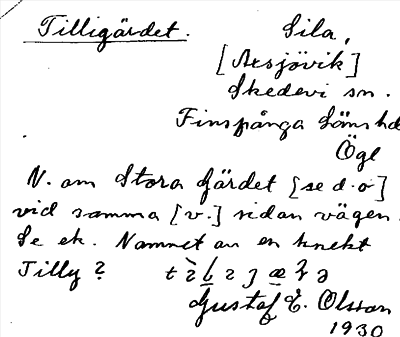 Tilligärdet. Sila,
[Arsjövik]
Skedevi sn.
Finspånga läns hd
Ögl
N. om Stora Gärdet [se d.o]
vid samma [v.] sidan vägen.
Se ek. Namnet av en knekt
Tilly?
Gustaf E. Olsson
1930